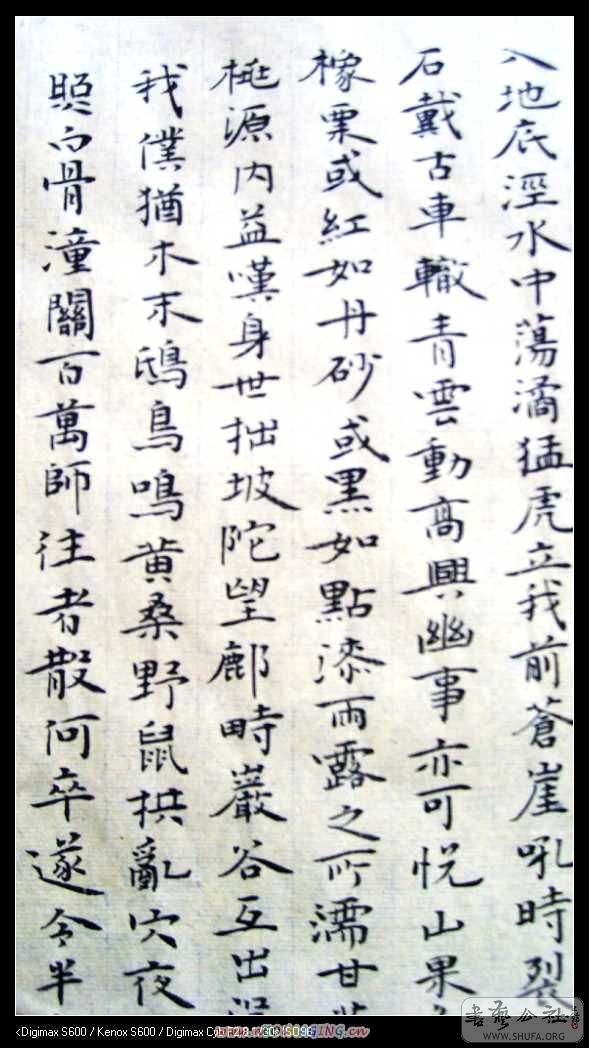 入地底涇水中蕩潏猛虎立我前蒼崖吼時裂
石戴古車轍青雲動高興幽事亦可悅山果
橡栗或紅如丹砂或黑如點漆雨露之所濡甘
桃源內益嘆身世拙坡陀望鄜畤巖谷互出
我僕猶木末鴟鳥鳴黃桑野鼠拱亂穴夜
照白骨潼關百萬師往者散何卒遂令半
<Digimax S600 / Kenox S600 / Digimax
書藝公社
WWW.SHUFA.ORG